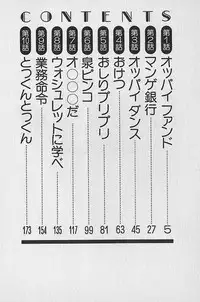 CONTENTS
第1話 オッパイファンド 5
第2話 マンゲ銀行 27
第3話 オッパイダンス 45
第4話 おけつ 63
第5話 おしりプリプリ 81
第6話 泉ピンコ 99
第7話 オ○○○だ 117
第8話 ウォシュレットに学べ 135
第9話 業務命令 154
第10話 とつくんとつくん 173